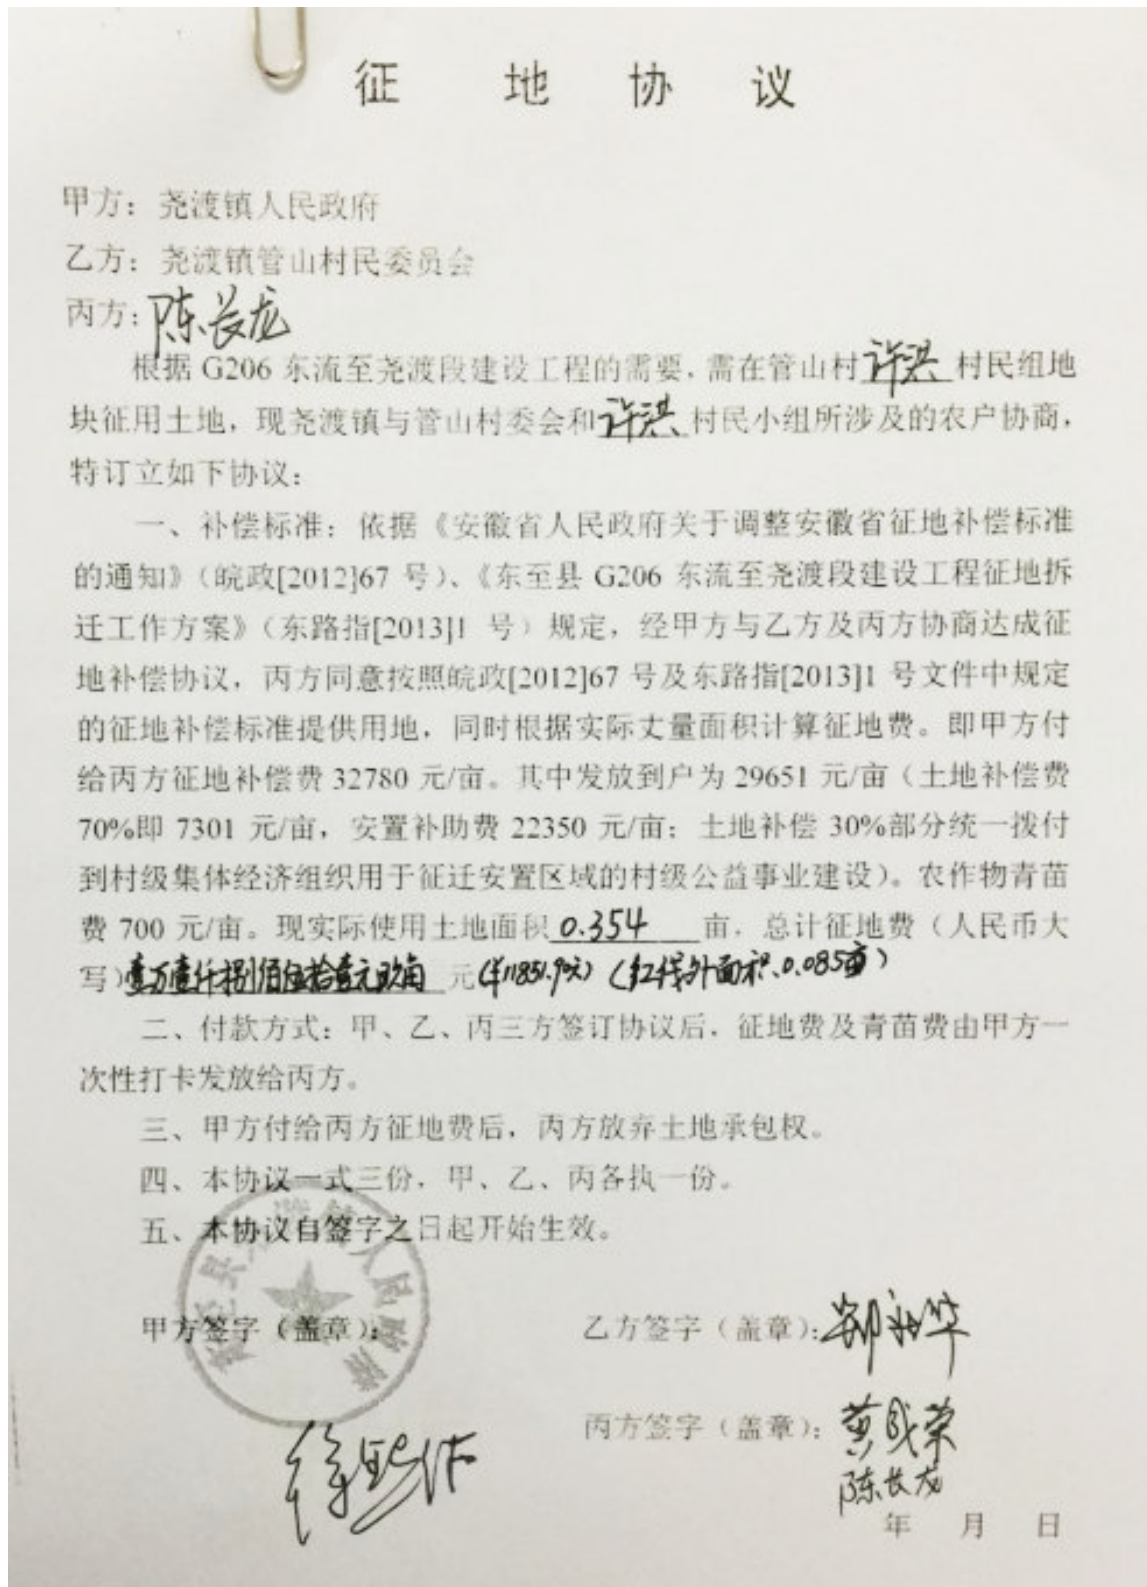 征地协议
甲方：尧渡镇人民政府
乙方：尧渡镇管山村民委员会
丙方：陈长龙
根据 G206 东流至尧渡段建设工程的需要，需在管山村许洪村民组地
块征用土地，现尧渡镇与管山村委会和许洪村民小组所涉及的农户协商，
特订立如下协议：
一、补偿标准：依据《安徽省人民政府关于调整安徽省征地补偿标准
的通知》（皖政[2012]67 号）、《东至县 G206 东流至尧渡段建设工程征地拆
迁工作方案》（东路指[2013]1 号）规定，经甲方与乙方及丙方协商达成征
地补偿协议，丙方同意按照皖政[2012]67 号及东路指[2013]1 号文件中规定
的征地补偿标准提供用地，同时根据实际丈量面积计算征地费。即甲方付
给丙方征地补偿费 32780 元/亩。其中发放到户为 29651 元/亩（土地补偿费
70%即 7301 元/亩，安置补助费 22350 元/亩；土地补偿 30%部分统一拨付
到村级集体经济组织用于征迁安置区域的村级公益事业建设）。农作物青苗
费 700 元/亩。现实际使用土地面积 0.354 亩，总计征地费（人民币大
写）壹万壹仟捌佰伍拾壹元玖角 元（¥11851.90元）（红线外面积、0.085亩）
二、付款方式：甲、乙、丙三方签订协议后，征地费及青苗费由甲方一
次性打卡发放给丙方。
三、甲方付给丙方征地费后，丙方放弃土地承包权。
四、本协议一式三份，甲、乙、丙各执一份。
五、本协议自签字之日起开始生效。
甲方签字（盖章）： 乙方签字（盖章）：
丙方签字（盖章）：黄成荣
陈长龙
年 月 日